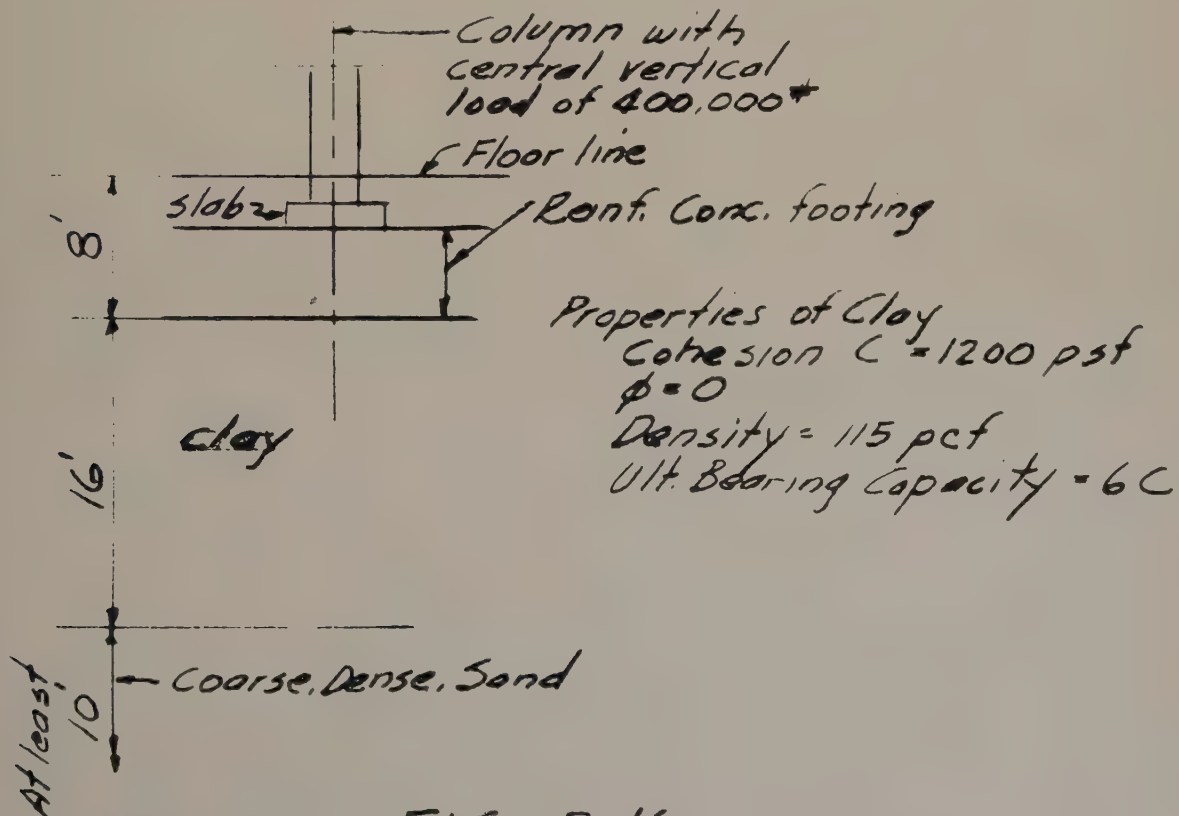 Column with
central vertical
load of 400,000#
Floor line
slab
Reinf. Conc. footing
8'
Properties of Clay
Cohesion C = 1200 psf
φ = 0
Density = 115 pcf
Ult. Bearing Capacity = 6 C
clay
16'
Coarse, Dense, Sand
At least
10'